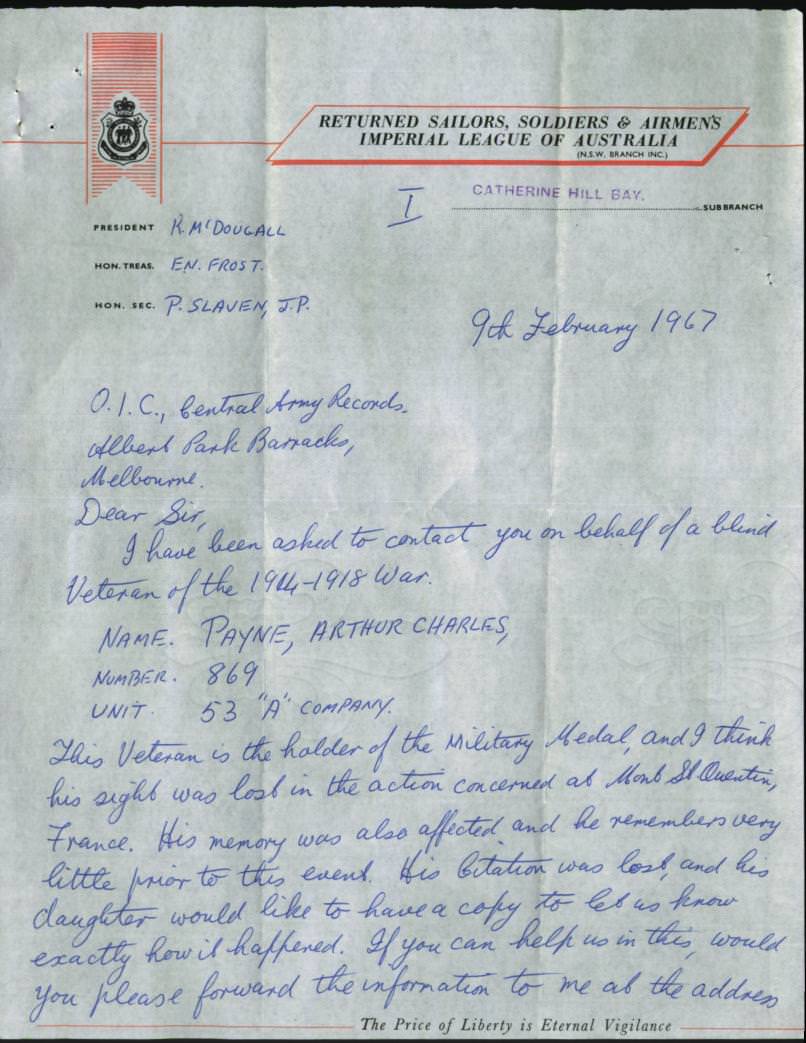 RETURNED SAILORS, SOLDIERS & AIRMEN'S
IMPERIAL LEAGUE OF AUSTRALIA
(N.S.W. BRANCH INC.)
I
CATHERINE HILL BAY. SUB BRANCH
PRESIDENT R. McDOUGALL
HON. TREAS. E.N. FROST.
HON. SEC. P. SLAVEN, J.P.
9th February 1967
O.I.C., Central Army Records.
Albert Park Barracks,
Melbourne.
Dear Sir,
I have been asked to contact you on behalf of a blind
Veteran of the 1914-1918 War.
NAME. PAYNE, ARTHUR CHARLES,
NUMBER. 869
UNIT. 53 "A" COMPANY.
This Veteran is the holder of the Military Medal, and I think
his sight was lost in the action concerned at Mont St Quentin,
France. His memory was also affected and he remembers very
little prior to this event. His Citation was lost, and his
daughter would like to have a copy to let us know
exactly how it happened. If you can help us in this, would
you please forward the information to me at the address
The Price of Liberty is Eternal Vigilance